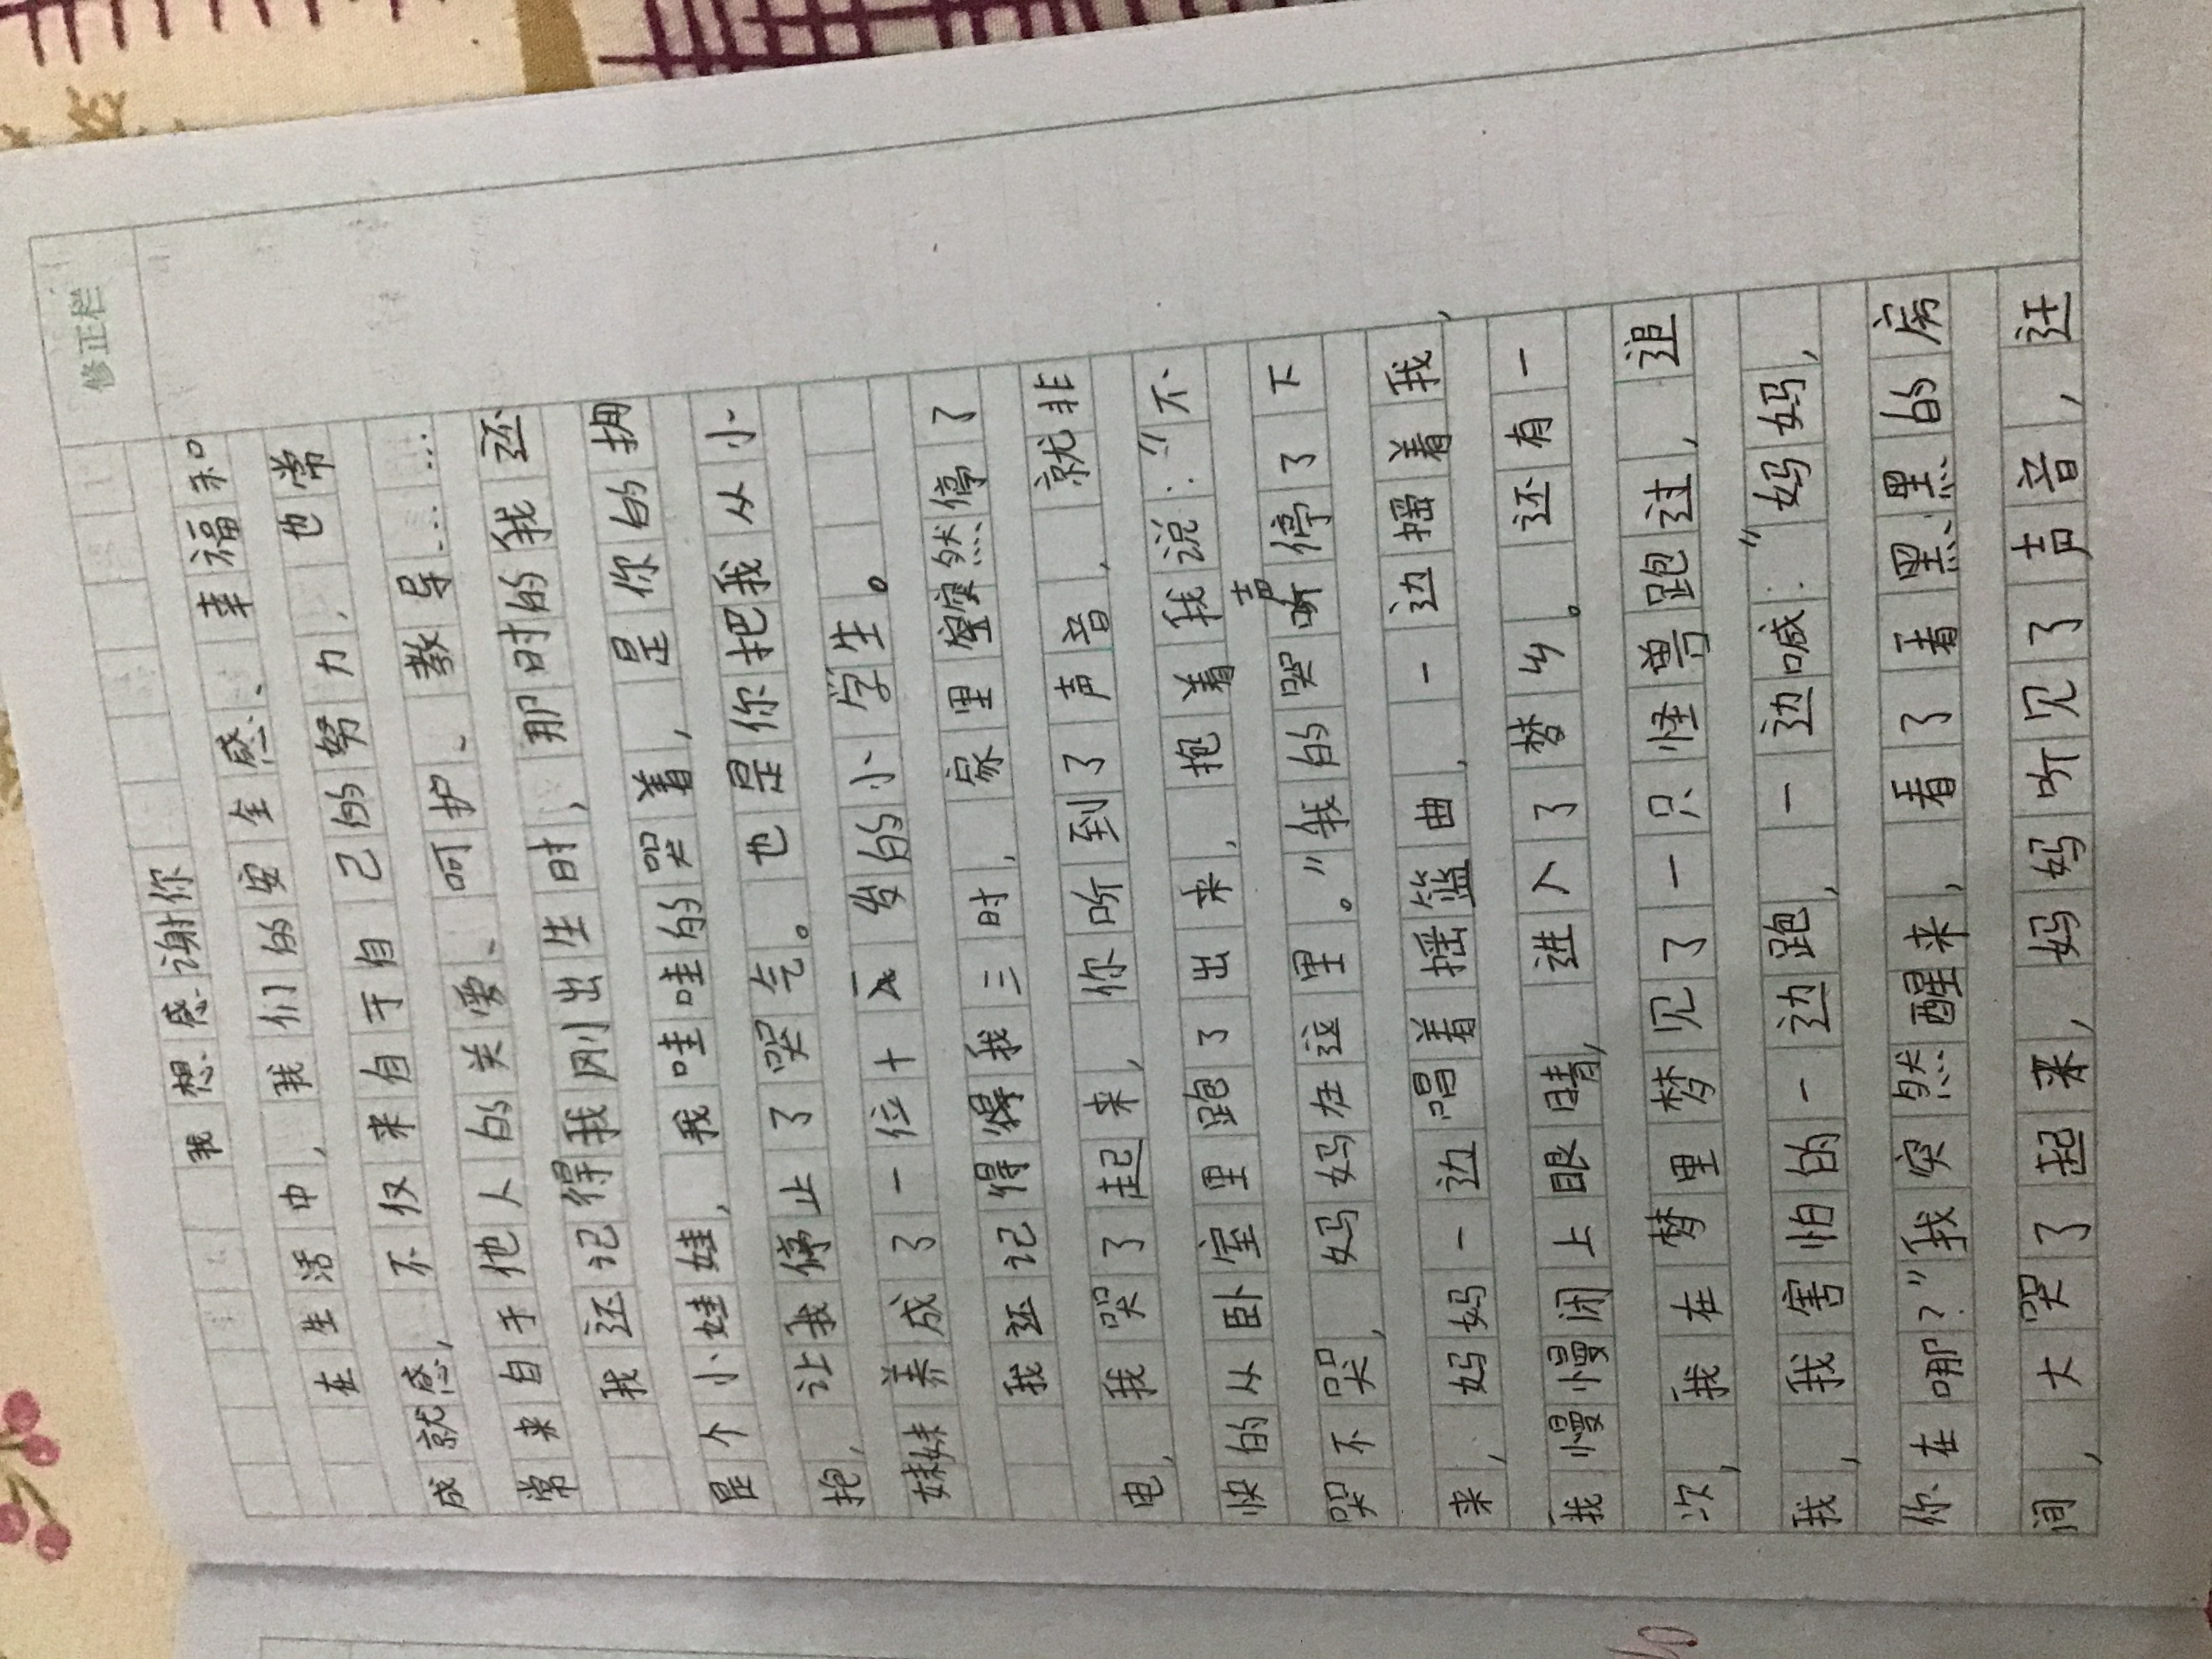 修正栏
我想感谢你
在生活中，我们的安全感、幸福和
成就感，不仅来自于自己的努力，也常
常来自于他人的关爱、呵护、教导……
我还记得我刚出生时，那时的我还
是个小娃娃，我哇哇的哭着，是你的拥
抱，让我停止了哭气。也是你把我从小
妹妹养成了一位十一岁的小学生。
我还记得我三时，家里突然停了
电，我哭了起来，你听到了声音，就非
快的从卧室里跑了出来，抱着我说：“不
哭不哭，妈妈在这里。”我的哭声停了下
来，妈妈一边唱着摇篮曲，一边摇着我，
我慢慢闭上眼睛，进入了梦乡。还有一
次，我在梦里梦见了一只怪兽跑过，追
我，我害怕的一边跑，一边喊：“妈妈，
你在哪？”我突然醒来，看了看黑黑的房
间，大哭了起来，妈妈听见了声音，迋